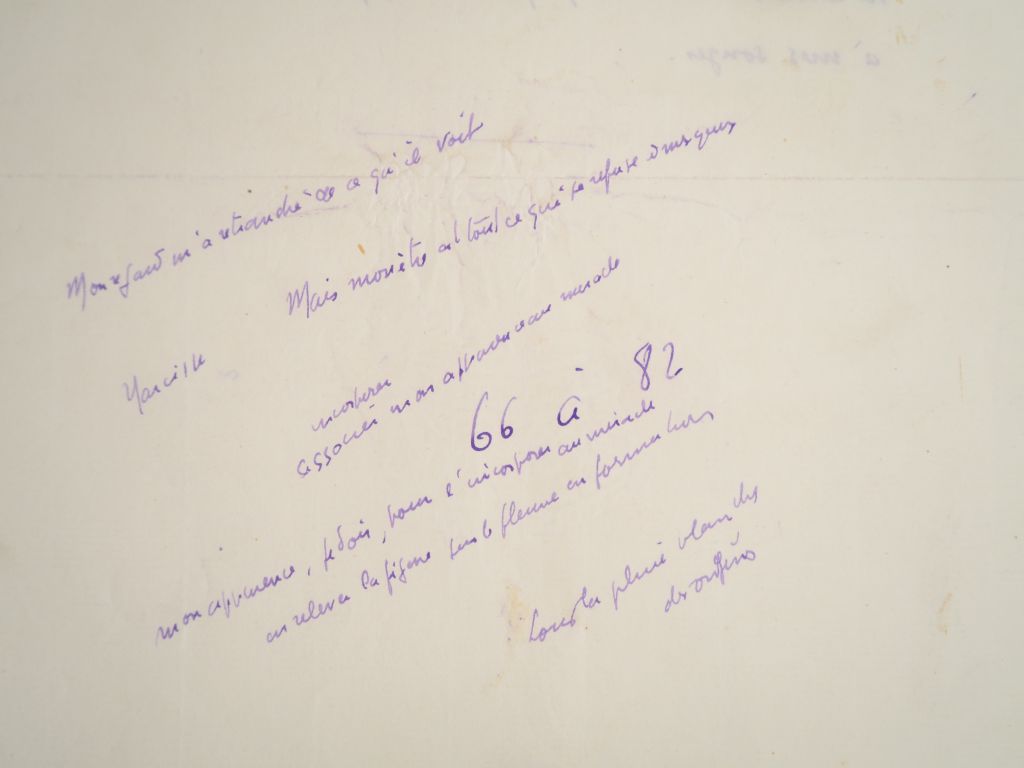 à mes songes
Mon regard m'a retranché de ce qu'il voit
Mais mon être est tout ce qui se refuse à mes yeux
incorporer
associer mon apparence au miracle
66 à 82
mon apparence, je dois, pour l'incorporer au miracle
en relever la figure sur le fleuve en formation
sous la pluie
des